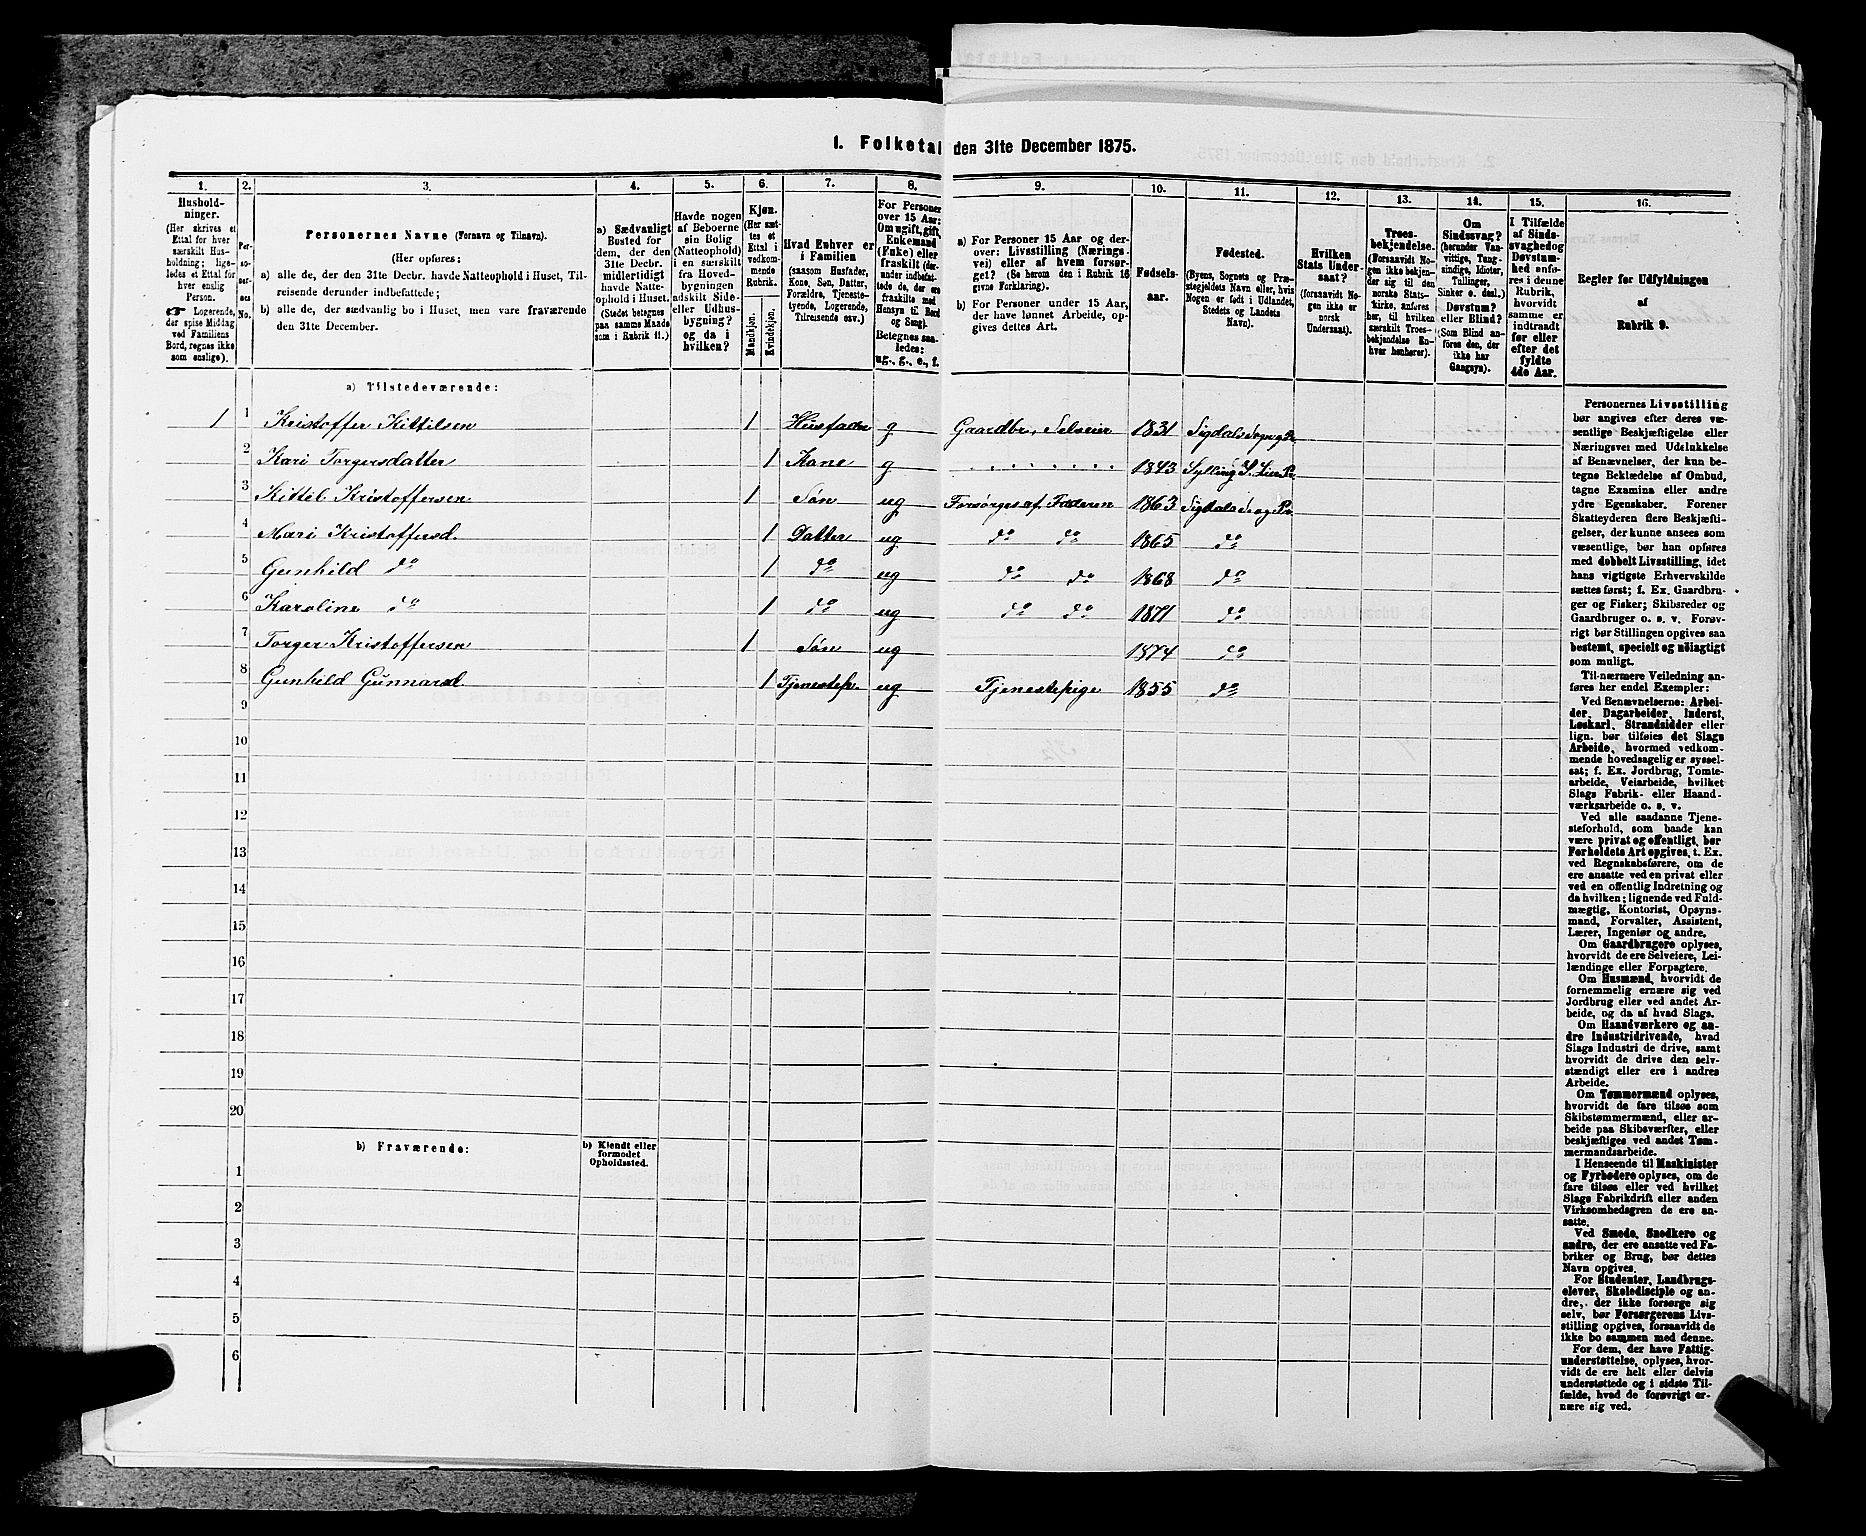 1. Folketal den 31te December 1875.
1.
2.
3.
4.
5.
6.
7.
8.
9.
10.
11.
12.
13.
14.
15.
16.
Hushold-
ninger.
(Her skrives et
Ettal for hver
særskilt Hus-
holdning; lige-
ledes et Ettal for
hver enslig
Person.
☛ Logerende,
der spise Middag
ved Familiens
Bord, regnes ikke
som enslige).
Per-
so-
nernes
No.
Personernes Navne (Fornavn og Tilnavn).
(Her opføres:
a) alle de, der den 31te Decbr. havde Natteophold i Huset, Til-
reisende derunder indbefattede;
b) alle de, der sædvanlig bo i Huset, men vare fraværende
den 31te December.
a) Sædvanligt
Bosted for
dem, der den
31te Decbr.
midlertidigt
havde Natte-
ophold i Huset.
(Stedet betegnes
paa samme Maade
som i Rubrik 11.)
Havde nogen
af Beboerne
sin Bolig
(Natteophold)
i en særskilt
fra Hoved-
bygningen
adskilt Side-
eller Udhus-
bygning?
og da i
hvilken?
Kjøn.
(Her sæt-
tes et
Ettal i
vedkom-
mende
Rubrik.
Mandkjøn.
Kvindekjøn.
Hvad Enhver er
i Familien
(saasom Husfader,
Kone, Søn, Datter,
Forældre, Tjeneste-
tyende, Logerende,
Tilreisende osv.)
For Personer
over 15 Aar:
Om ugift, gift,
Enkemand
(Enke) eller
fraskilt (der-
under indbefat-
tede de, der ere
fraskilte med
Hensyn til Bord
og Seng).
Betegnes saa-
ledes:
ug., g., e., f.
a) For Personer 15 Aar og der-
over: Livsstilling (Nærings-
vei) eller af hvem forsør-
get? (Se herom den i Rubrik 16
givne Forklaring).
b) For Personer under 15 Aar,
der have lønnet Arbeide, op-
gives dettes Art.
Fødsels-
aar.
Fødested.
(Byens, Sognets og Præ-
stegjeldets Navn eller, hvis
Nogen er født i Udlandet,
Stedets og Landets
Navn).
Hvilken
Stats Under-
saat?
(forsaavidt No-
gen ikke er
norsk
Undersaat).
Troes-
bekjendelse.
(Forsaavidt No-
gen ikke bekjen-
der sig til den
norske Stats-
kirke, anføres
her, til hvilken
særskilt Troes-
bekjendelse En-
hver henhører).
Om
Sindssvag?
(herunder Van-
vittige, Tung-
sindige, Idioter,
Tullinger,
Sinker o. desl.)
Døvstum?
eller Blind?
(Som Blind an-
føres den, der
ikke har
Gangsyn).
I Tilfælde
af Sinds-
svaghed og
Døvstum-
hed anfø-
res i denne
Rubrik,
hvorvidt
samme er
indtraadt
før eller
efter det
fyldte
4de Aar.
Regler for Udfyldningen
af
Rubrik 9.
a) Tilstedeværende:
1 1 Kristoffer Kittilsen 1 Husfader g Gaardbr., Selveier 1831 Sigdals Sogn og Pr.
2 Kari Torgersdatter 1 Kone g 1843 Sylling S. Lier Pr.
3 Kittil Kristoffersen 1 Søn ug Forsørges af Faderen 1863 Sigdals S. og Pr.
4 Mari Kristoffersd. 1 Datter ug do do 1865 do
5 Gunhild do 1 do ug do do 1868 do
6 Karoline do 1 do ug do do 1871 do
7 Torger Kristoffersen 1 Søn ug 1874 do
8 Gunhild Gunnarsd. 1 Tjenestep. ug Tjenestepige 1855 do
9
10
11
12
13
14
15
16
17
18
19
20
b) Fraværende:
b) Kjendt eller
formodet
Opholdssted.
1
2
3
4
5
6
Personernes Livsstilling
bør angives efter deres væ-
sentlige Beskjæftigelse eller
Næringsvei med Udelukkelse
af Benævnelser, der kun be-
tegne Beklædelse af Ombud,
tagne Examina eller andre
ydre Egenskaber. Forener
Skatteyderen flere Beskjæfti-
gelser, der kunne ansees som
væsentlige, bør han opføres
med dobbelt Livsstilling, idet
hans vigtigste Erhvervskilde
sættes først; f. Ex. Gaardbru-
ger og Fisker; Skibsreder og
Gaardbruger o. s. v. Forøv-
rigt bør Stillingen opgives saa
bestemt, specielt og nöiagtigt
som muligt.
Til nærmere Veiledning an-
føres her endel Exempler:
Ved Benævnelserne: Arbei-
der, Dagarbeider, Inderst,
Løskarl, Strandsidder eller
lign. bør tilføies det Slags
Arbeide, hvormed vedkom-
mende hovedsagelig er syssel-
sat; f. Ex. Jordbrug, Tomte-
arbeide, Veiarbeide, hvilket
Slags Fabrik- eller Haand-
værksarbeide o. s. v.
Ved alle saadanne Tjene-
steforhold, som baade kan
være privat og offentligt, bør
Forholdets Art opgives, t. Ex.
ved Regnskabsførere, om de
ere ansatte ved en privat eller
ved en offentlig Indretning og
da hvilken; lignende ved Fuld-
mægtig, Kontorist, Opsyns-
mand, Forvalter, Assistent,
Lærer, Ingeniør og andre.
Om Gaardbrugere oplyses,
hvorvidt de ere Selveiere, Lei-
lændinge eller Forpagtere.
Om Husmænd, hvorvidt de
fornemmelig ernære sig ved
Jordbrug eller ved andet Ar-
beide, og da af hvad Slags.
Om Haandværkere og an-
dre Industridrivende, hvad
Slags Industri de drive, samt
hvorvidt de drive den selv-
stændigt eller ere i andres
Arbeide.
Om Tømmermænd oplyses,
hvorvidt de fare tilsøs som
Skibstømmermænd, eller ar-
beide paa Skibsværfter, eller
beskjæftiges ved andet Tøm-
mermandsarbeide.
I Henseende til Maskinister
og Fyrbødere oplyses, om de
fare tilsøs eller ved hvilket
Slags Fabrikdrift eller anden
Virksomhedsgren de ere an-
satte.
Ved Smede, Snedkere og
andre, der ere ansatte ved Fa-
briker og Brug, bør dettes
Navn opgives.
For Studenter, Landbrugs-
elever, Skoledisciple og an-
dre, der ikke forsørge sig
selv, bør Forsørgerens Livs-
stilling opgives, forsaavidt de
ikke bo sammen med denne.
For dem, der have Fattig-
understøttelse, oplyses, hvor-
vidt de ere helt eller delvis
understøttede og i sidste Til-
fælde, hvad de forøvrigt er-
nære sig ved.